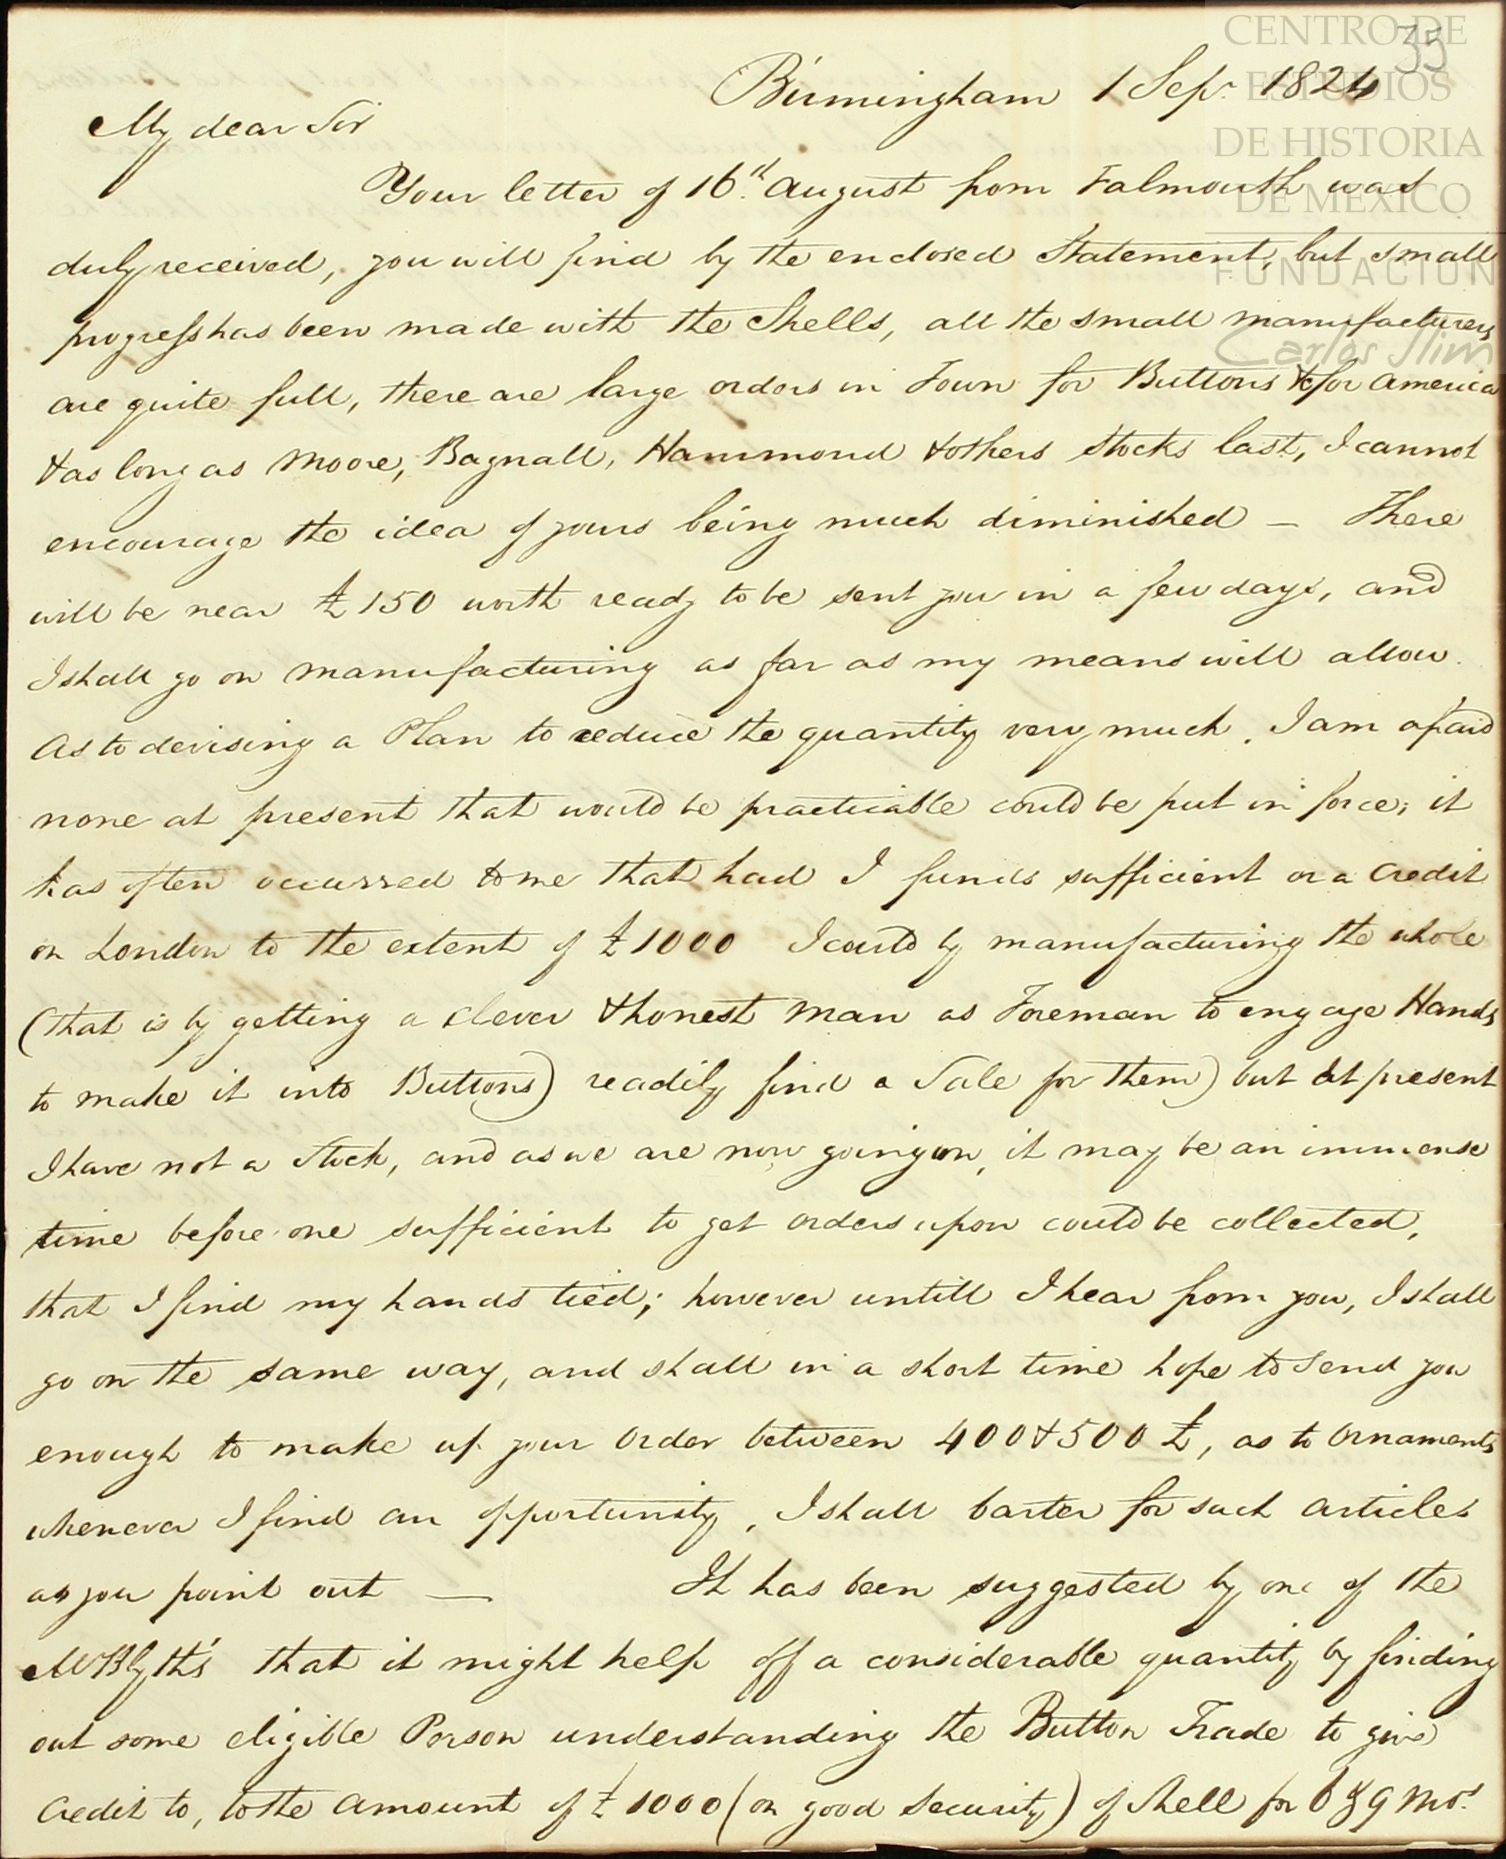 CENTRO DE
ESTUDIOS
DE HISTORIA
DE MEXICO
FUNDACION
Carlos Slim
35
Birmingham 1 Sepr. 1824
My dear Sir
Your letter of 16th. August from Falmouth was
duly received, you will find by the enclosed Statement, but small
progress has been made with the Shells, all the small manufacturers
are quite full, there are large orders in Town for Buttons & for America
& as long as Moore, Bagnall, Hammond & others stocks last, I cannot
encourage the idea of yours being much diminished — There
will be near £150 worth ready to be sent you in a few days, and
I shall go on manufacturing as far as my means will allow.
As to devising a Plan to reduce the quantity very much, I am afraid
none at present that would be practicable could be put in force; it
has often occurred to me that had I funds sufficient or a Credit
on London to the extent of £1000 I could by manufacturing the whole
(that is by getting a clever & honest Man as Foreman to engage Hands
to make it into Buttons) readily find a Sale for them) but At present
I have not a Stock, and as we are now going on, it may be an immense
time before one sufficient to get orders upon could be collected,
that I find my hands tied; however untill I hear from you, I shall
go on the same way, and shall in a short time hope to send you
enough to make up your Order between 400 & 500 £, as to Ornaments
whenever I find an opportunity, I shall barter for such articles
as you point out — It has been suggested by one of the
Mr Blyth's that it might help off a considerable quantity by finding
out some eligible Person understanding the Button Trade to give
Credit to, to the Amount of £1000 (on good Security) of Shell for 6 & 9 Mos.